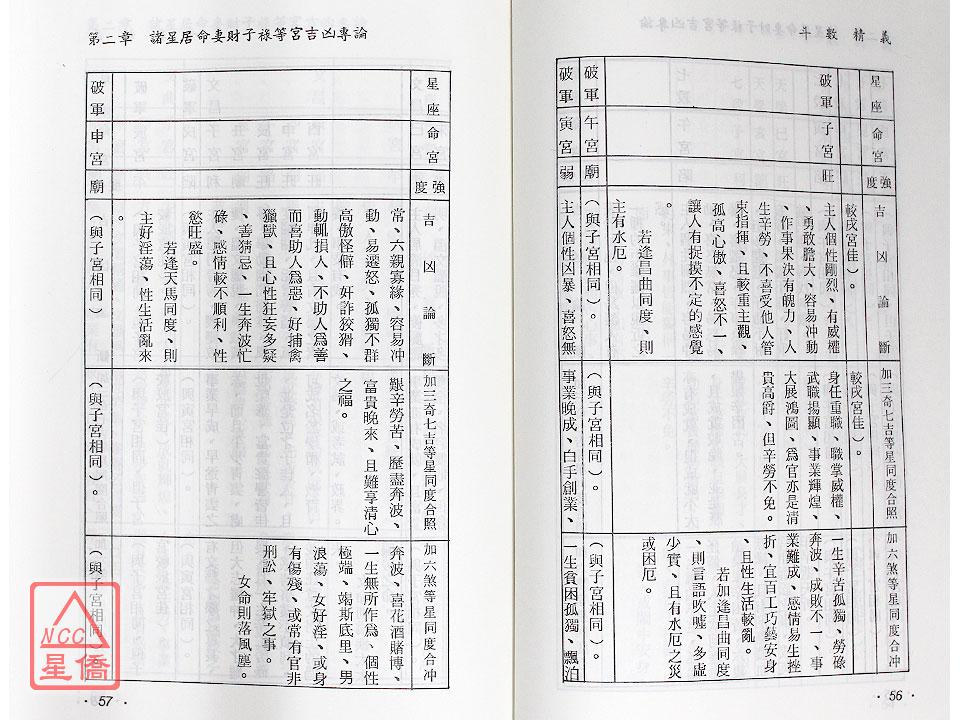 斗數精義
星座
命宮
強度
吉凶論斷
加三奇七吉等星同度合照
加六煞等星同度合冲
破軍
子宮
旺
較戌宮佳）。
主人個性剛烈、有威權
、勇敢膽大、容易冲動
、作事果決有魄力、人
生辛勞、不喜受他人管
束指揮、且較重主觀、
孤高心傲、喜怒不一、
讓人有捉摸不定的感覺
。
若逢昌曲同度、則
主有水厄。
較戌宮佳）。
身任重職、職掌威權、
武職揚顯、事業輝煌、
大展鴻圖、為官亦是清
貴高爵、但辛勞不免。
一生辛苦孤獨、勞碌
奔波、成敗不一、事
業難成、感情易生挫
折、宜百工巧藝安身
、且性生活較亂。
若加逢昌曲同度
、則言語吹噓、多虛
少實、且有水厄之災
或困厄。
破軍
午宮
廟
（與子宮相同）
（與子宮相同）。
（與子宮相同）。
破軍
寅宮
弱
主人個性凶暴、喜怒無
事業晚成、白手創業、
一生貧困孤獨、飄泊
·56·
第二章　諸星居命妻財子祿等宮吉凶專論
常、六親寡緣、容易冲
動、易遷怒、孤獨不群
高傲怪僻、奸詐狡猾、
動輒損人、不助人為善
而喜助人為惡、好捕禽
獵獸、且心性狂妄多疑
、善猜忌、一生奔波忙
碌、感情較不順利、性
慾旺盛。
若逢天馬同度、則
主好淫蕩、性生活亂來
。
艱辛勞苦、歷盡奔波、
富貴晚來、且難享清心
之福。
奔波、喜花酒賭博、
一生無所作為、個性
極端、竭斯底里、男
浪蕩、女好淫、或身
有傷殘、或常有官非
刑訟、牢獄之事。
女命則落風塵。
破軍
申宮
廟
（與子宮相同）
（與子宮相同）。
（與子宮相同）
·57·
NCC
星僑